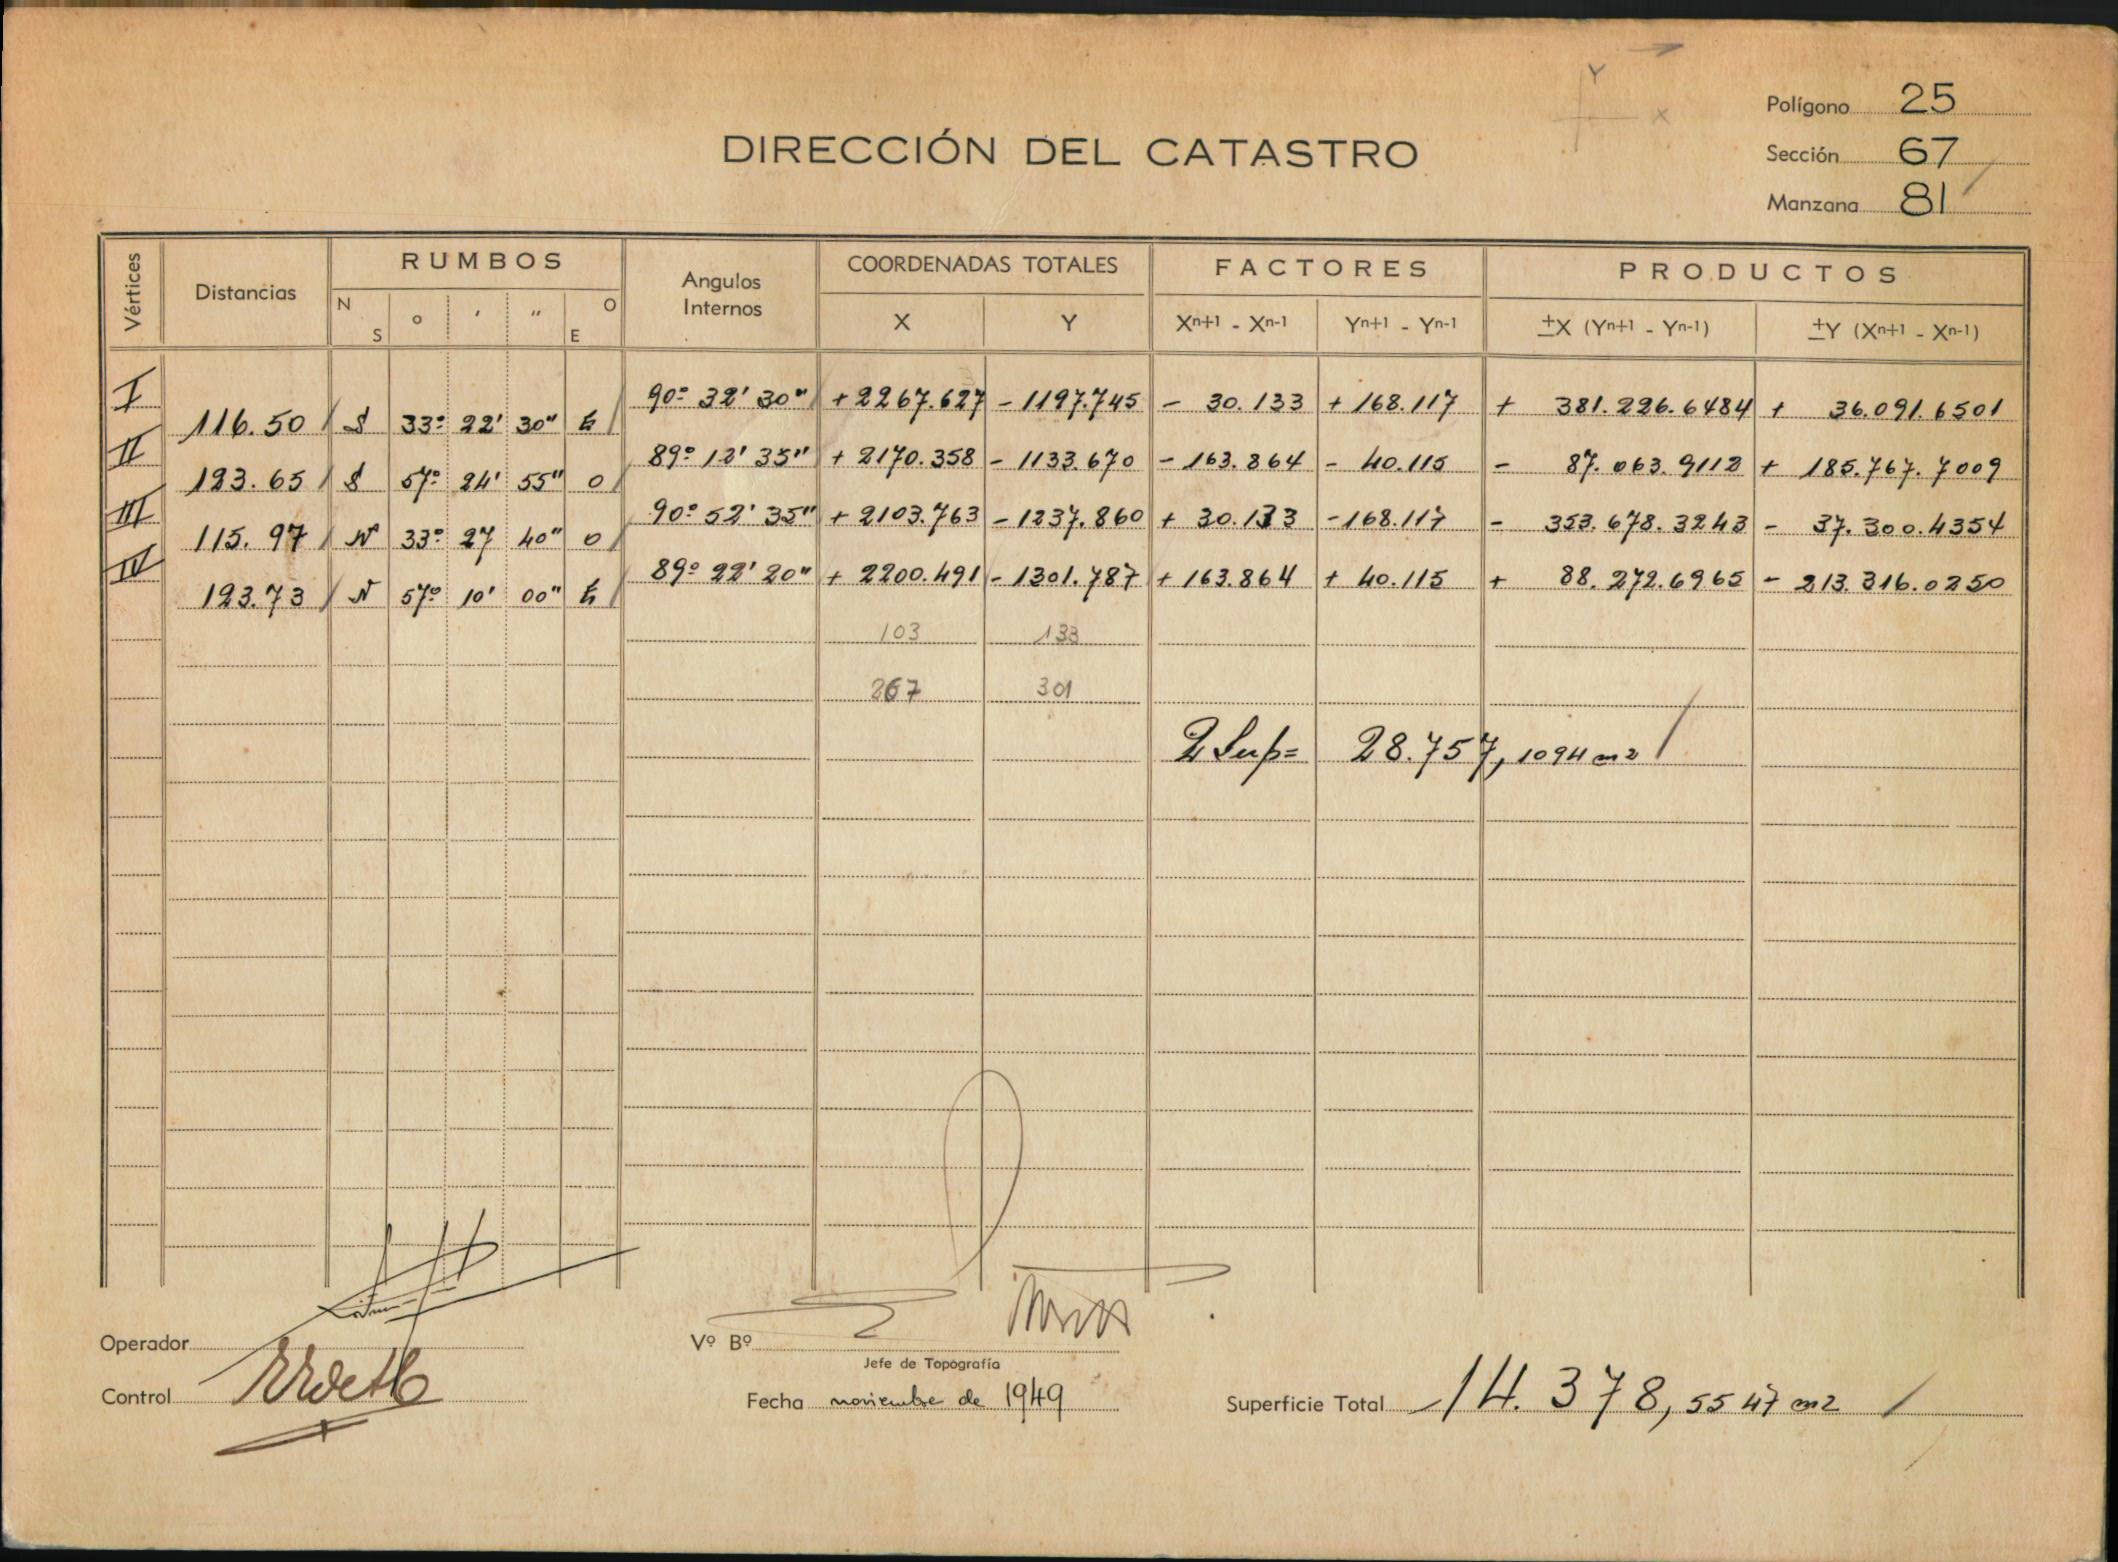 Y
X
Polígono 25
DIRECCIÓN DEL CATASTRO
Sección 67
Manzana 81
Vértices Distancias RUMBOS Angulos Internos COORDENADAS TOTALES FACTORES PRODUCTOS
N S o ' " O E X Y Xn+1 - Xn-1 Yn+1 - Yn-1 ±X (Yn+1 - Yn-1) ±Y (Xn+1 - Xn-1)
I 90º 32' 30" + 2267.627 - 1197.745 - 30.133 + 168.117 + 381.226.6484 + 36.091.6501
116.50 S 33º 22' 30" E
II 89º 12' 35" + 2170.358 - 1133.670 - 163.864 - 40.115 - 87.063.9112 + 185.767.7009
123.65 S 57º 24' 55" O
III 90º 52' 35" + 2103.763 - 1237.860 + 30.133 - 168.117 - 353.678.3243 - 37.300.4354
115.97 N 33º 27 40" O
IV 89º 22' 20" + 2200.491 - 1301.787 + 163.864 + 40.115 + 88.272.6965 - 213.316.0250
123.73 N 57º 10' 00" E
103 133
267 301
2 Sup= 28.757,1094 m2
Operador
Vº Bº
Jefe de Topografía
Control
Fecha noviembre de 1949
Superficie Total 14.378,5547 m2